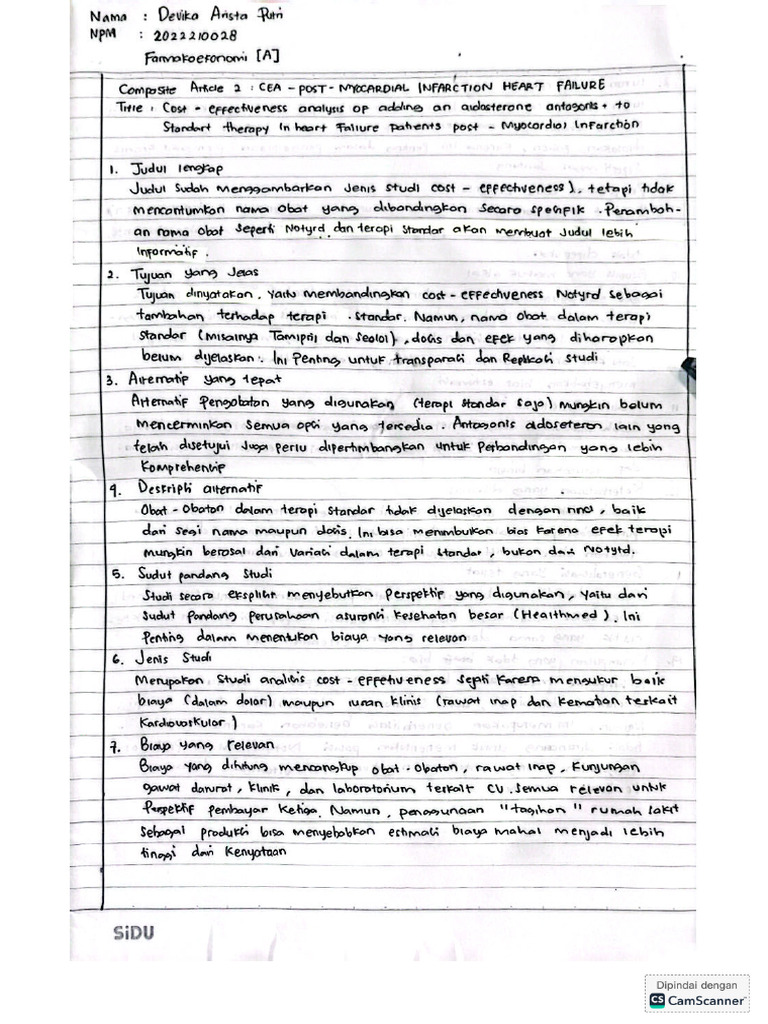 Nama : Devika Arista Putri
NPM : 2022210028
Farmakoekonomi [A]
Composite Article 2 : CEA - POST - MYOCARDIAL INFARCTION HEART FAILURE
Title : Cost - effectiveness analysis of adding an aldosterone antagonis + to
Standart therapy in heart Failure Patients post - Myocardial Infarction
1. Judul lengkap
Judul Sudah menggambarkan Jenis studi cost - effectiveness), tetapi tidak
mencantumkan nama Obat yang dibandingkan Secara spesifik. Penambah-
an nama Obat Seperti Notyrd dan terapi Standar akan membuat Judul lebih
Informatif.
2. Tujuan yang Jelas
Tujuan dinyatakan, Yaitu membandingkan cost - effectiveness Notyrd sebagai
tambahan terhadap terapi Standar. Namun, nama obat dalam terapi
Standar (misalnya Tamipril dan Seolol), dosis dan efek yang diharapkan
belum dijelaskan. Ini Penting untuk transparasi dan Replikasi Studi.
3. Alternatif yang tepat
Alternatif Pengobatan yang digunakan (terapi Standar saja) mungkin belum
mencerminkan semua opsi yang tersedia. Antagonis aldosteron lain yang
telah disetujui Juga perlu dipertimbangkan untuk Perbandingan yang lebih
Komprehensif
4. Deskripsi alternatif
Obat - Obatan dalam terapi Standar tidak dijelaskan dengan rinci, baik
dari segi nama maupun dosis. Ini bisa menimbulkan bias karena efek terapi
mungkin berasal dari Variasi dalam terapi Standar, bukan dari Notyrd.
5. Sudut pandang Studi
Studi secara eksplisit menyebutkan Perspektif yang digunakan, Yaitu dari
Sudut Pandang perusahaan asuransi kesehatan besar (Healthmed). Ini
Penting dalam menentukan biaya yang relevan
6. Jenis Studi
Merupakan Studi analisis cost - effetiveness Karena mengukur baik
biaya (dalam dolar) maupun klinis (rawat inap dan Kematian terkait
Kardiovaskular)
7. Biaya yang relevan
Biaya yang dihitung mencangkup obat - obatan, rawat inap, Kunjungan
gawat darurat, klinik, dan laboratorium terkait CV. Semua relevan untuk
Perspektif pembayar Ketiga. Namun, penggunaan "tagihan" rumah sakit
Sebagai produksi bisa menyebabkan estimasi biaya mahal menjadi lebih
tinggi dari Kenyataan
SiDU
Dipindai dengan
CS CamScanner